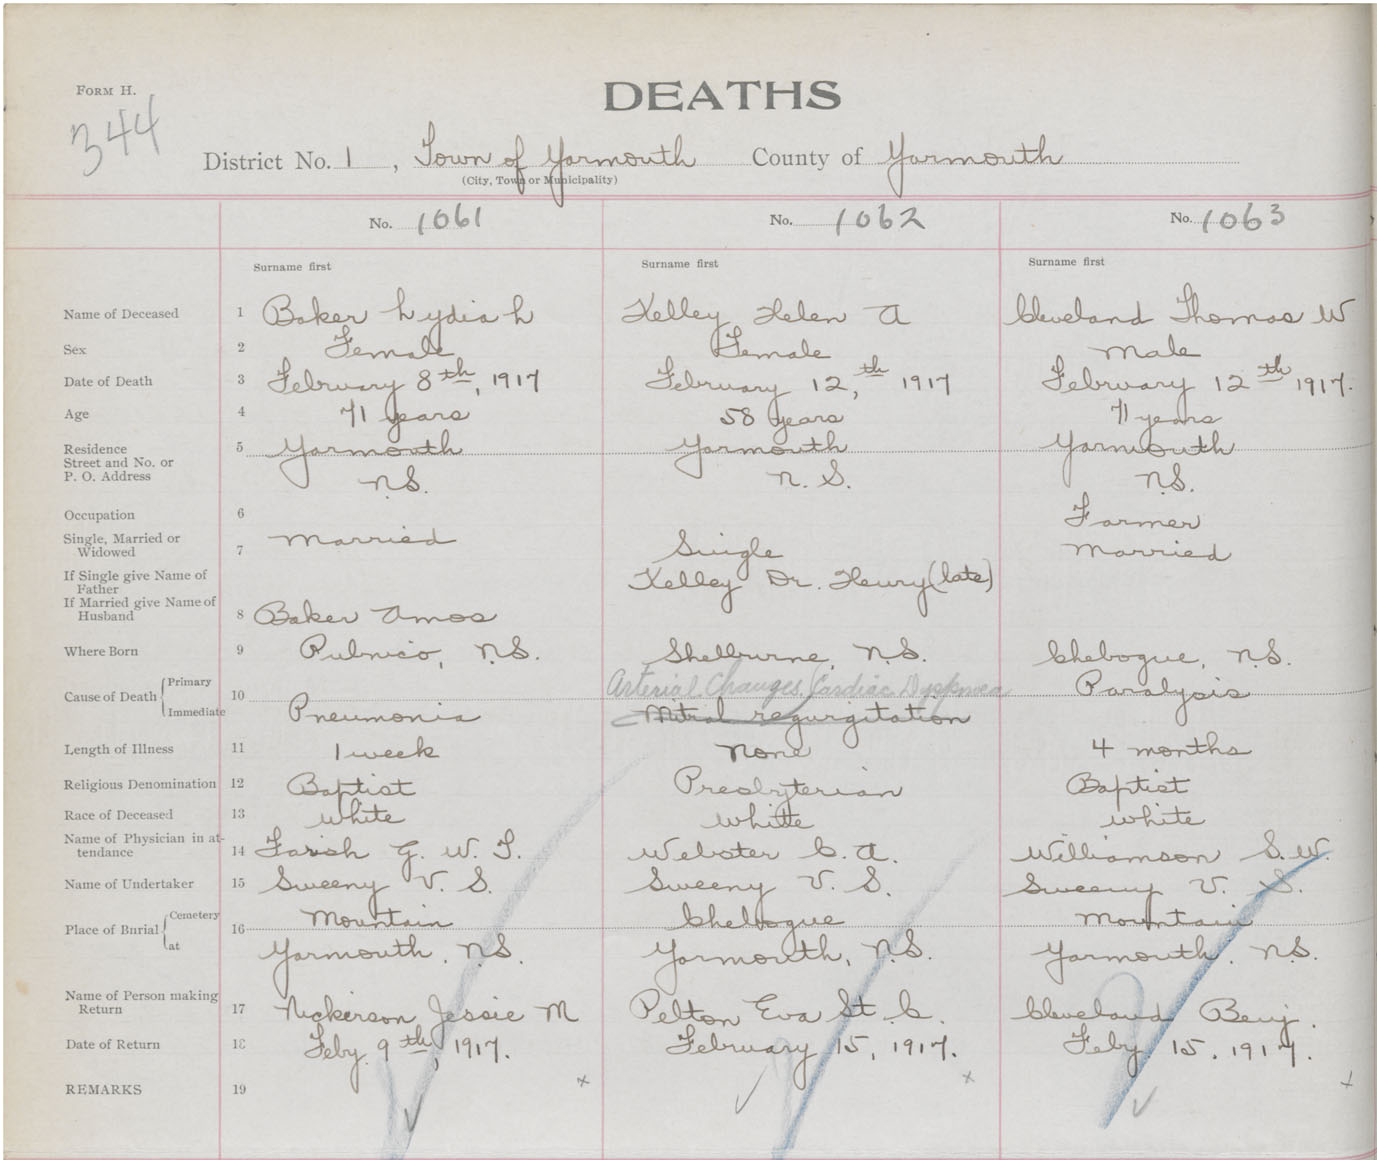 FORM H.
DEATHS
344
District No. 1, Town of Yarmouth County of Yarmouth
(City, Town or Municipality)
No. 1061 No. 1062 No. 1063
Surname first Surname first Surname first
Name of Deceased 1 Baker Lydia L Kelley Helen A Cleveland Thomas W
Sex 2 Female Female Male
Date of Death 3 February 8th, 1917 February 12,th 1917 February 12th 1917.
Age 4 71 years 58 years 71 years
Residence 5 Yarmouth Yarmouth Yarmouth
Street and No. or
P. O. Address N.S. N. S. N.S.
Occupation 6 Farmer
Single, Married or
Widowed 7 Married Single Married
If Single give Name of
Father Kelley Dr. Henry (late)
If Married give Name of
Husband 8 Baker Amos
Where Born 9 Pubnico, N.S. Shelburne, N.S. Chebogue, N.S.
Cause of Death Primary 10 Arterial Changes. Cardiac Dyspnoea Paralysis
Immediate Pneumonia Mitral regurgitation
Length of Illness 11 1 week None 4 months
Religious Denomination 12 Baptist Presbyterian Baptist
Race of Deceased 13 White White White
Name of Physician in at-
tendance 14 Farish G. W. T. Webster C. A. Williamson S. W.
Name of Undertaker 15 Sweeny V. S. Sweeny V. S. Sweeny V. S.
Place of Burial Cemetery 16 Mountain Chebogue Mountain
at Yarmouth, N.S. Yarmouth, N.S. Yarmouth, N.S.
Name of Person making
Return 17 Nickerson Jessie M Pelton Eva St. C. Cleveland Benj.
Date of Return 18 Feby. 9th, 1917. February 15, 1917. Feby 15. 1917.
REMARKS 19